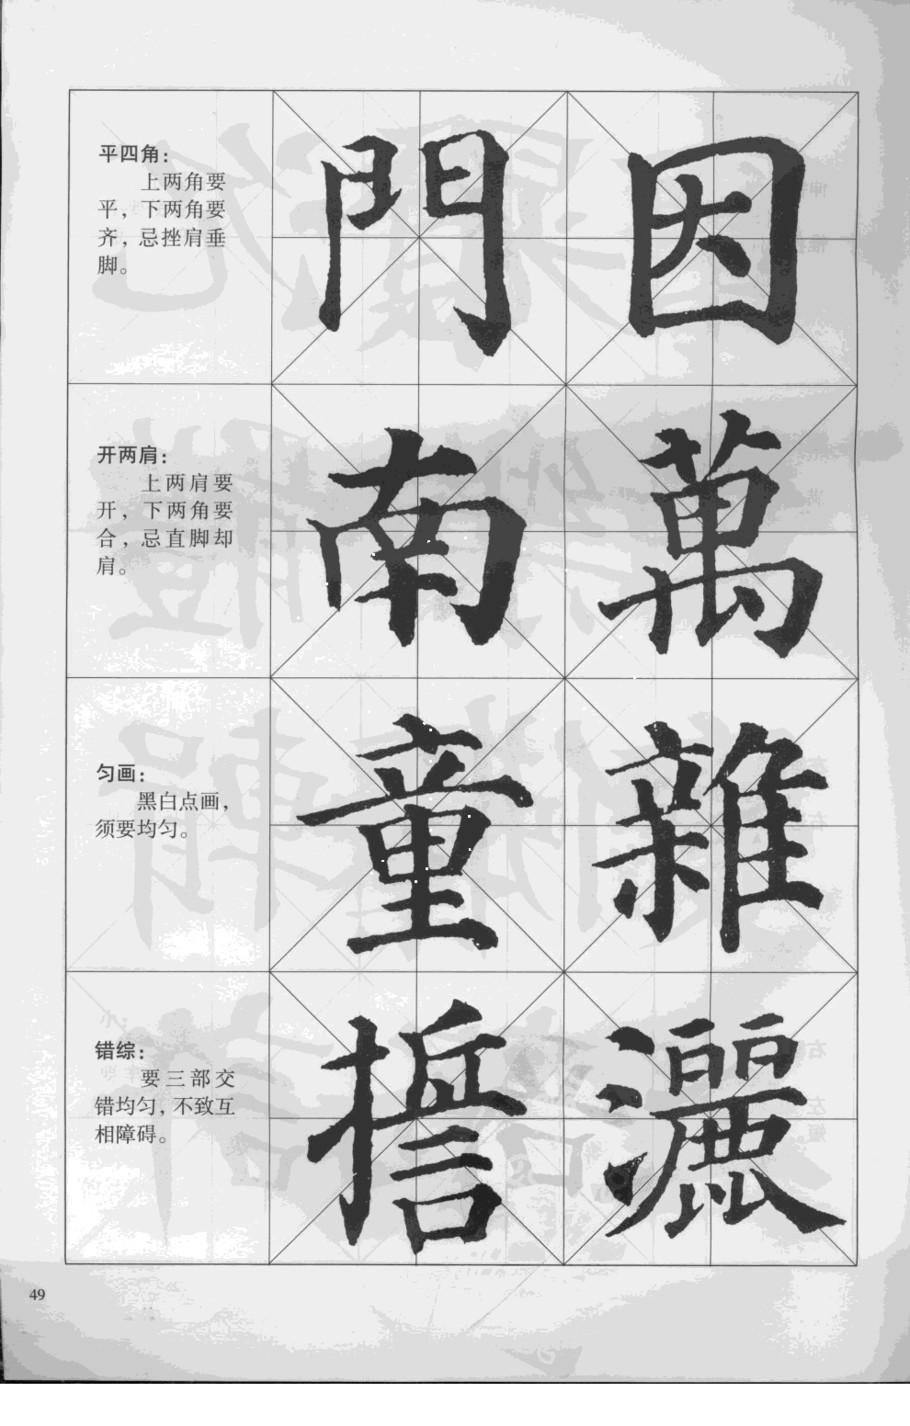 平四角：
上两角要
平，下两角要
齐，忌挫肩垂
脚。
門 因
开两肩：
上两肩要
开，下两角要
合，忌直脚却
肩。
南 萬
匀画：
黑白点画，
须要均匀。
童 雜
错综：
要三部交
错均匀，不致互
相障碍。
誓 灑
49